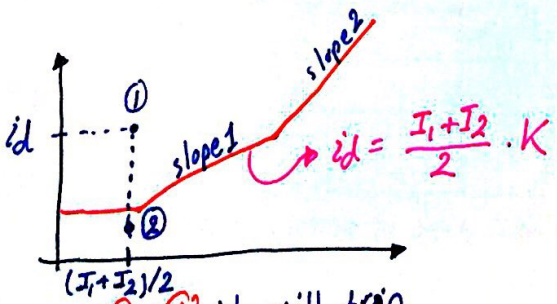 slope2
①
id
slope1
id = (I₁+I₂)/2 · K
②
(I₁+I₂)/2